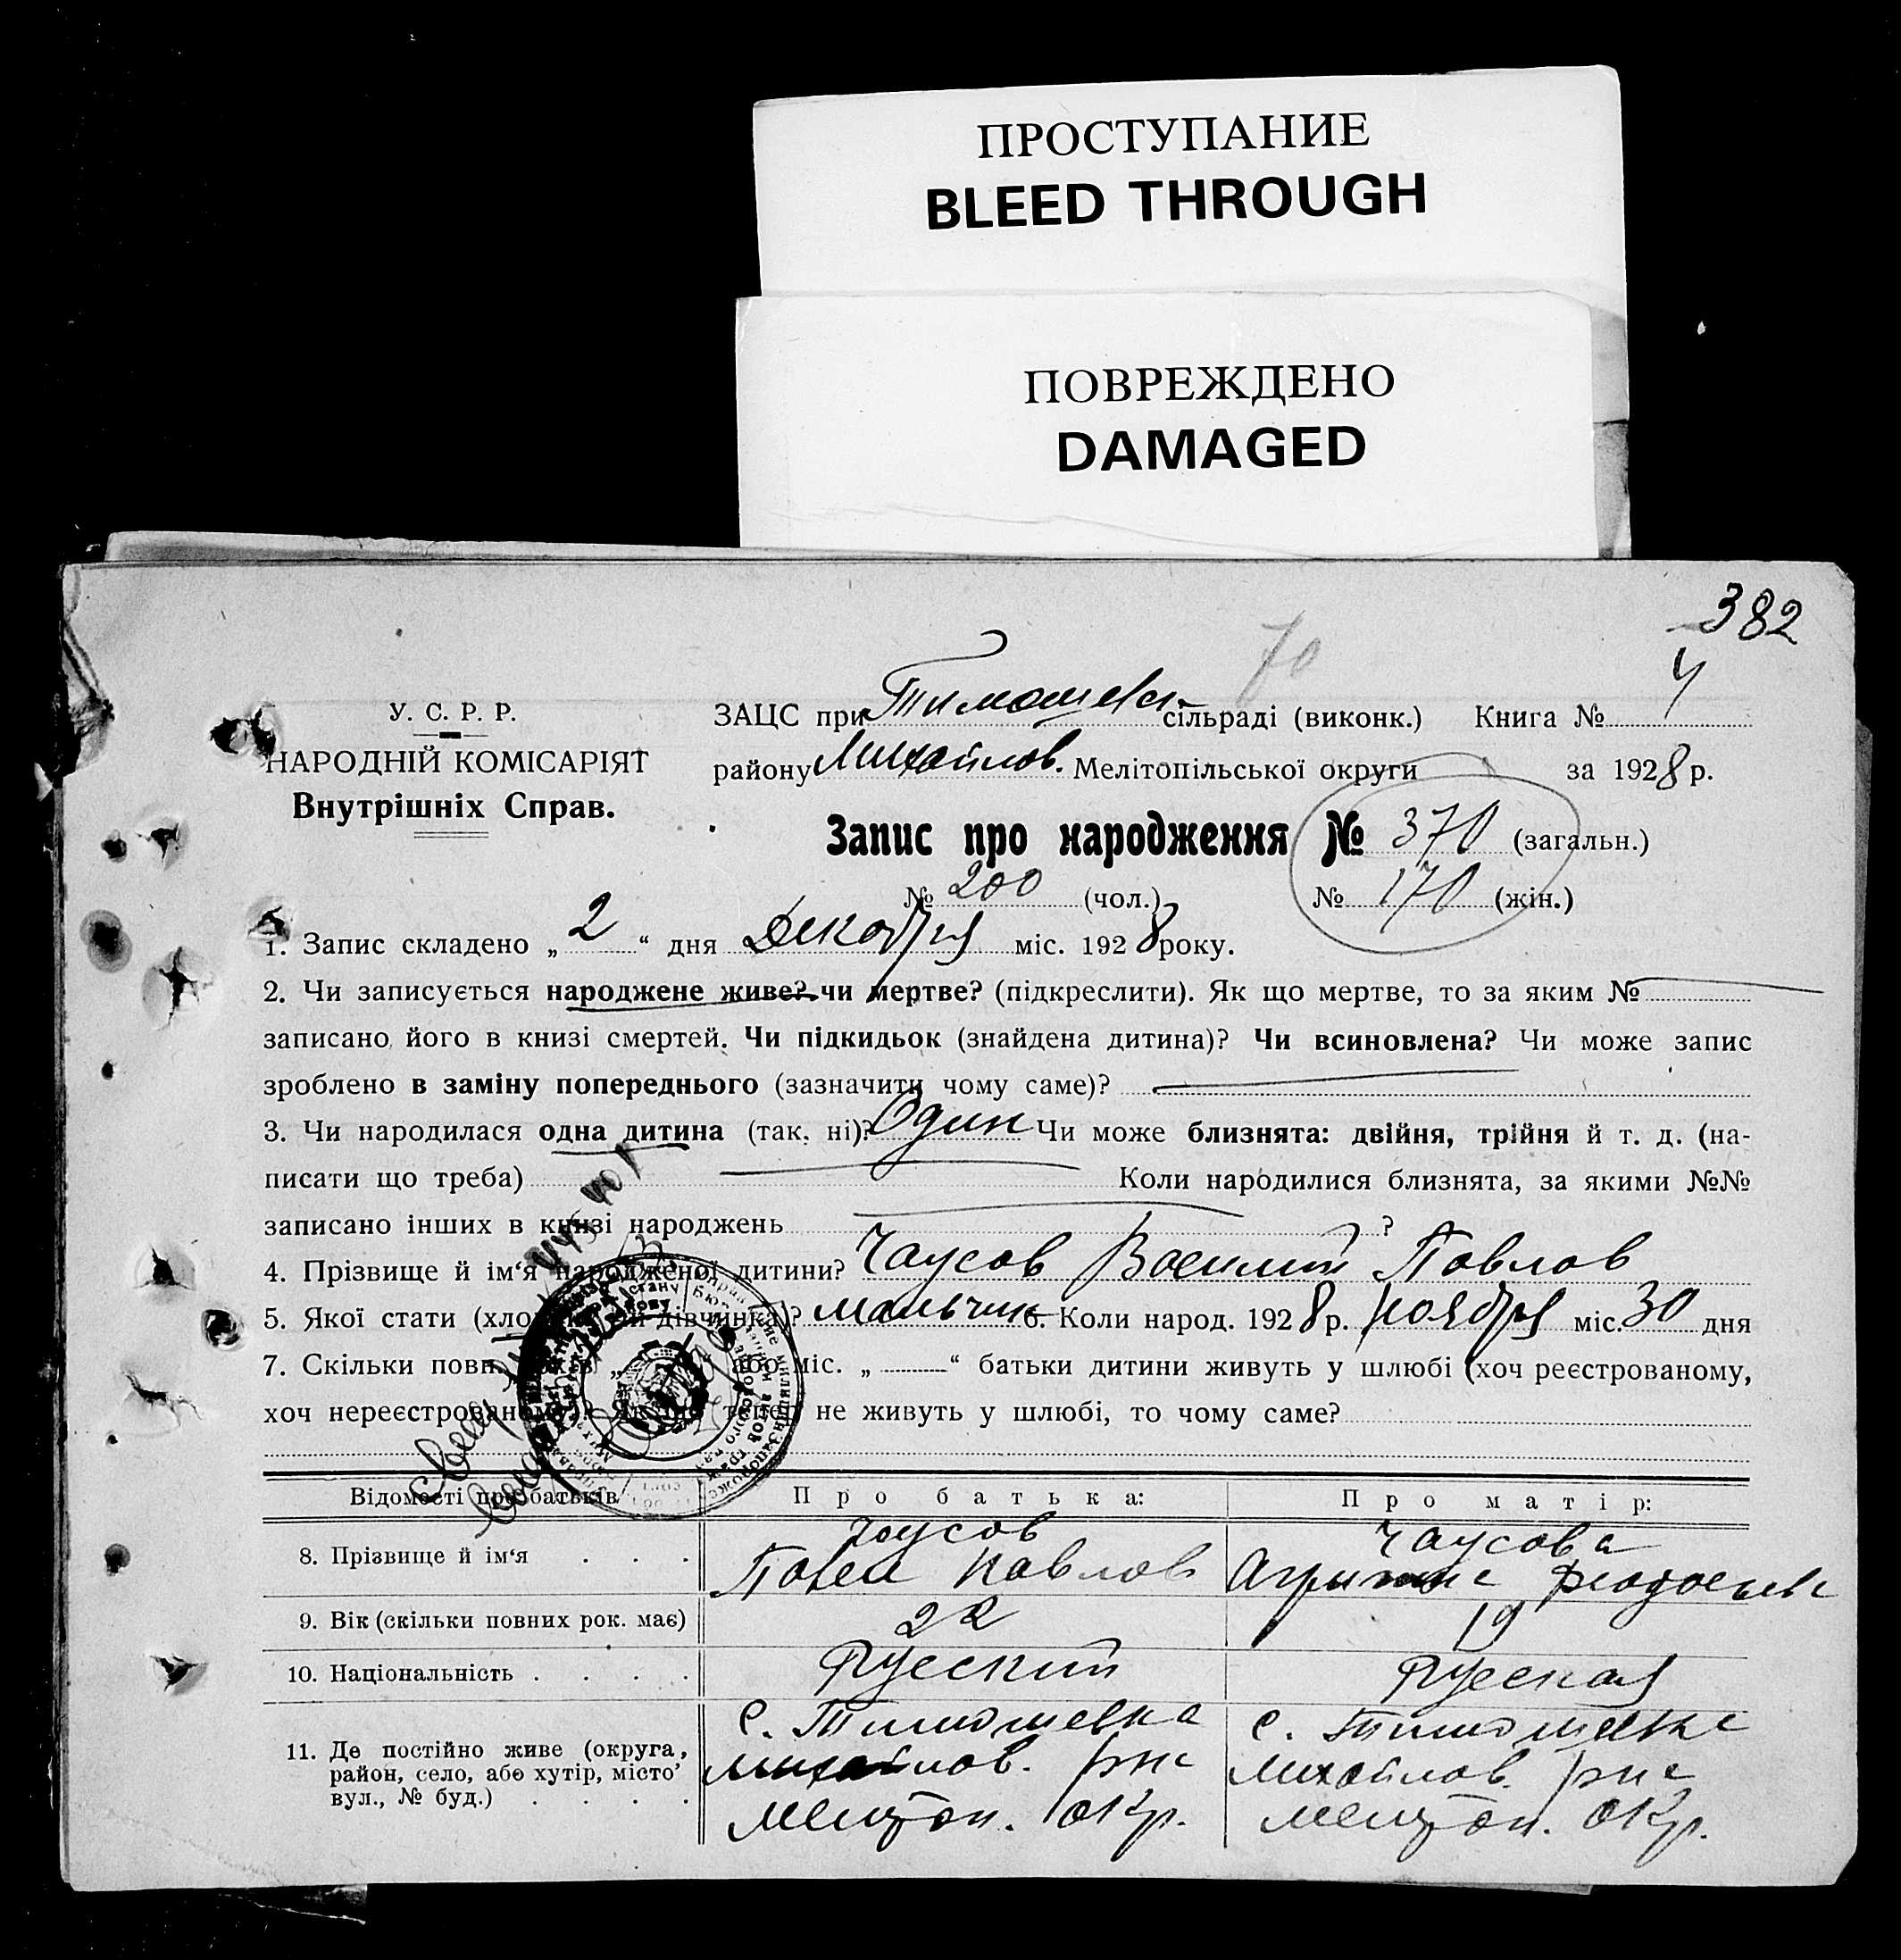 ПРОСТУПАНИЕ
BLEED THROUGH
ПОВРЕЖДЕНО
DAMAGED
382
70
У. С. Р. Р.
НАРОДНІЙ КОМІСАРІЯТ
Внутрішніх Справ.
ЗАЦС при Тимошевск сільраді (виконк.) Книга № 4
району Михайлов. Мелітопільської округи за 1928 р.
Запис про народження № 370 (загальн.)
№ 200 (чол.) № 170 (жін.)
1. Запис складено „ 2 “ дня Декабря міс. 1928 року.
2. Чи записується народжене живе? чи мертве? (підкреслити). Як що мертве, то за яким №
записано його в книзі смертей. Чи підкидьок (знайдена дитина)? Чи всиновлена? Чи може запис
зроблено в заміну попереднього (зазначити чому саме)?
3. Чи народилася одна дитина (так, ні)? Один Чи може близнята: двійня, трійня й т. д. (на-
писати що треба) Коли народилися близнята, за якими №№
записано інших в книзі народжень ?
4. Прізвище й ім‘я народженої дитини? Чаусов Василий Павлов
5. Якої стати (хло дівчинка)? мальчик 6. Коли народ. 1928 р. ноября міс. 30 дня
7. Скільки повн або міс. „ “ батьки дитини живуть у шлюбі (хоч реєстрованому,
хоч нереєстрованому)? Як що тепер не живуть у шлюбі, то чому саме?
Відомості про батьків Про батька: Про матір:
8. Прізвище й ім‘я . . . Чаусов Павел Павлов Чаусова Агрипина Феодосьев
9. Вік (скільки повних рок. має) 22 19
10. Національність . . . . Русский Русская
11. Де постійно живе (округа, район, село, або хутір, місто, вул., № буд.) . . . . с. Тимошевка Михайлов. рна Мелитоп. окр. с. Тимошевка Михайлов. рна Мелитоп. окр.